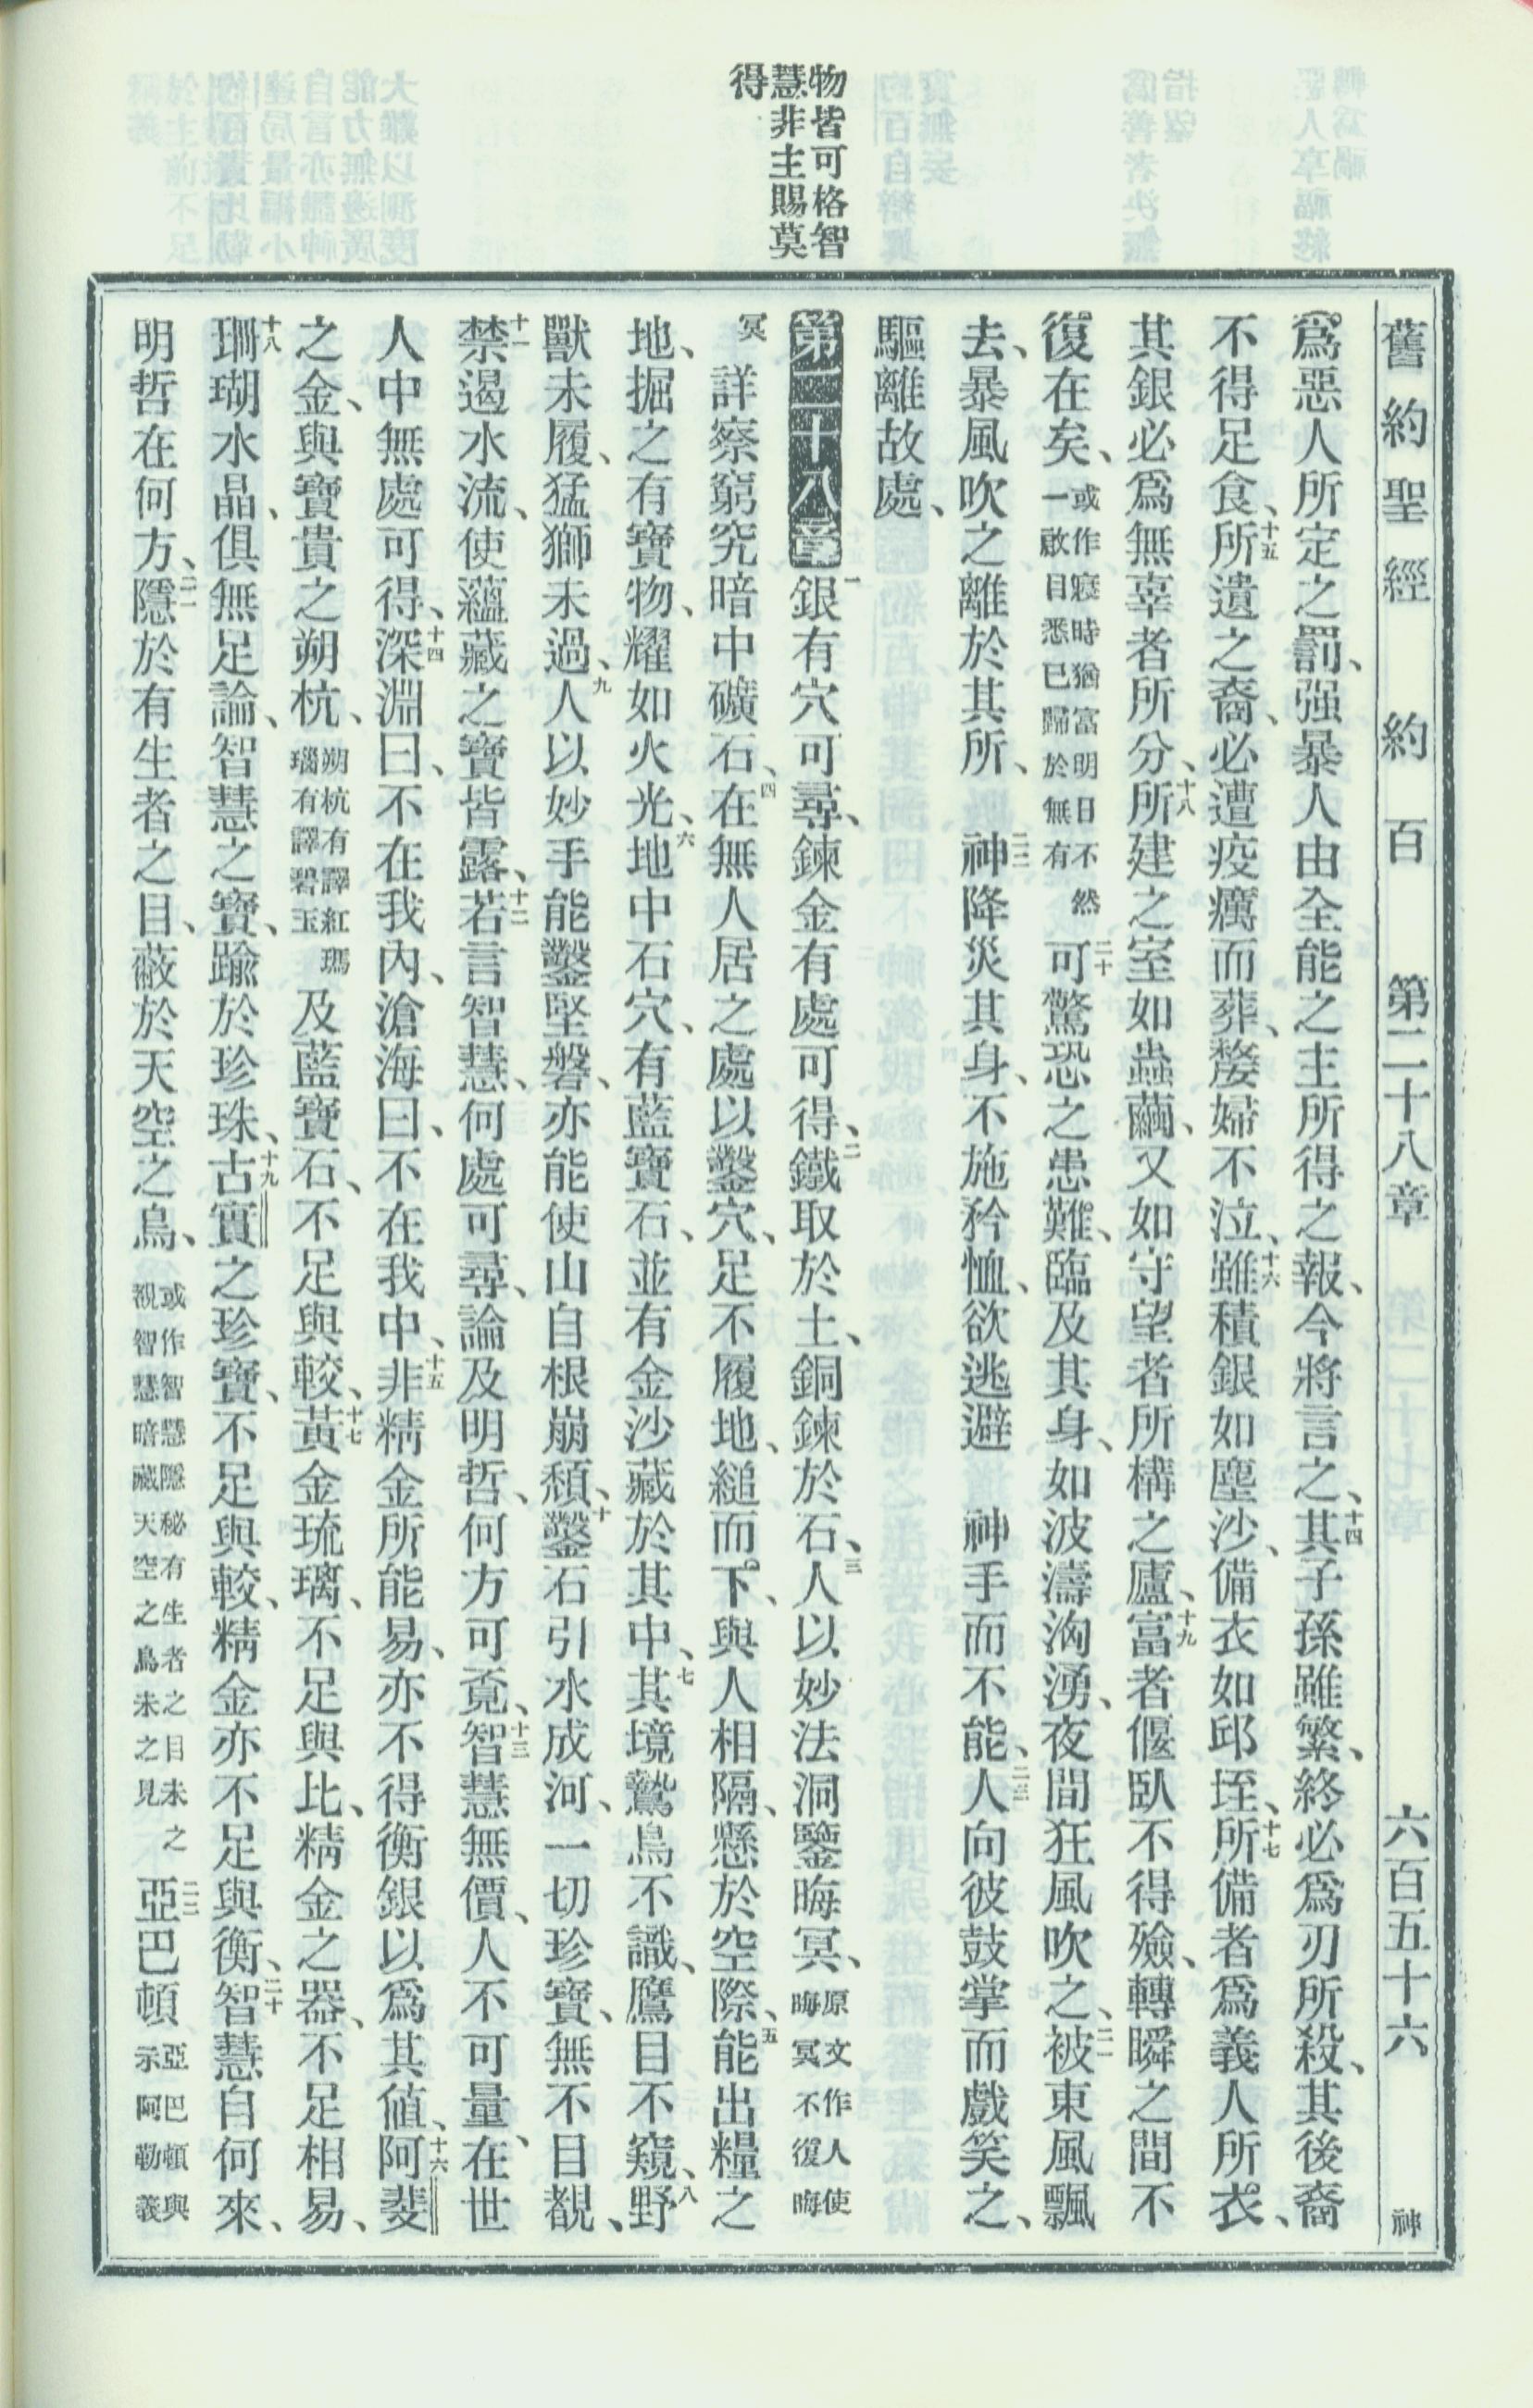 舊約聖經 約百 第二十八章 六百五十六 神
物皆可格智
慧非主賜莫
得
爲惡人所定之罰、强暴人由全能之主所得之報、今將言之、十四其子孫雖繁、終必爲刃所殺、其後裔
不得足食、十五所遺之裔、必遭疫癘而葬、嫠婦不泣、十六雖積銀如塵沙、備衣如邱垤、十七所備者爲義人所衣、
其銀必爲無辜者所分、十八所建之室如蟲繭、又如守望者所構之廬、十九富者偃臥不得殮、轉瞬之間不
復在矣、或作寢時猶富明日不然一啟目悉已歸於無有二十可驚恐之患難、臨及其身、如波濤洶湧、夜間狂風吹之、二一被東風飄
去、暴風吹之離於其所、二二神降災其身、不施矜恤、欲逃避 神手而不能、二三人向彼鼓掌而戲笑之、
驅離故處、
第二十八章 一銀有穴可尋、鍊金有處可得、二鐵取於土、銅鍊於石、三人以妙法洞鑒晦冥、原文作人使晦晦冥不復
冥 詳察窮究暗中礦石、四在無人居之處以鑿穴、足不履地、縋而下、與人相隔、懸於空際、五能出糧之
地、掘之有寶物、耀如火光、六地中石穴、有藍寶石、並有金沙藏於其中、七其境鷙鳥不識、鷹目不窺、八野
獸未履、猛獅未過、九人以妙手能鑿堅磐、亦能使山自根崩頹、十鑿石引水成河、一切珍寶、無不目覩、
十一禁遏水流、使蘊藏之寶皆露、十二若言智慧、何處可尋、論及明哲、何方可覓、十三智慧無價、人不可量、在世
人中無處可得、十四深淵曰、不在我內、滄海曰、不在我中、十五非精金所能易、亦不得衡銀以爲其値、十六阿斐
之金、與寶貴之朔杭、朔杭有譯紅瑪瑙有譯碧玉及藍寶石、不足與較、十七黃金琉璃、不足與比、精金之器、不足相易、
十八珊瑚水晶、俱無足論、智慧之寶、踰於珍珠、十九古實之珍寶、不足與較、精金亦不足與衡、二十智慧自何來、
明哲在何方、二一隱於有生者之目、蔽於天空之鳥、或作智慧隱秘有生者之目未之覩智慧暗藏天空之鳥未之見二二亞巴頓亞巴頓與示阿勒義